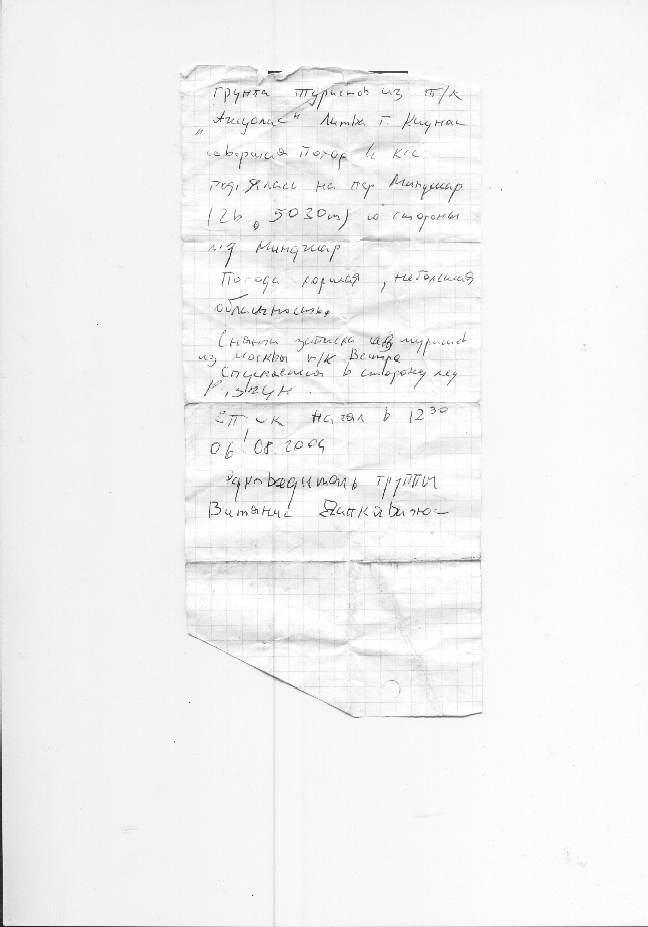 группа туристов из т/к
"Ажуолас" Литва г. Каунас
совершая поход 4 к.с.
поднялась на пер Минджар
(2Б, 5030м) со стороны
лед Минджар
Погода хорошая, небольшая
облачность.
Снята записка туристов
из Москвы т/к Вестра
Спускаемся в сторону лед
начал в 12³⁰
06.08.2004
Руководитель группы
Витянис